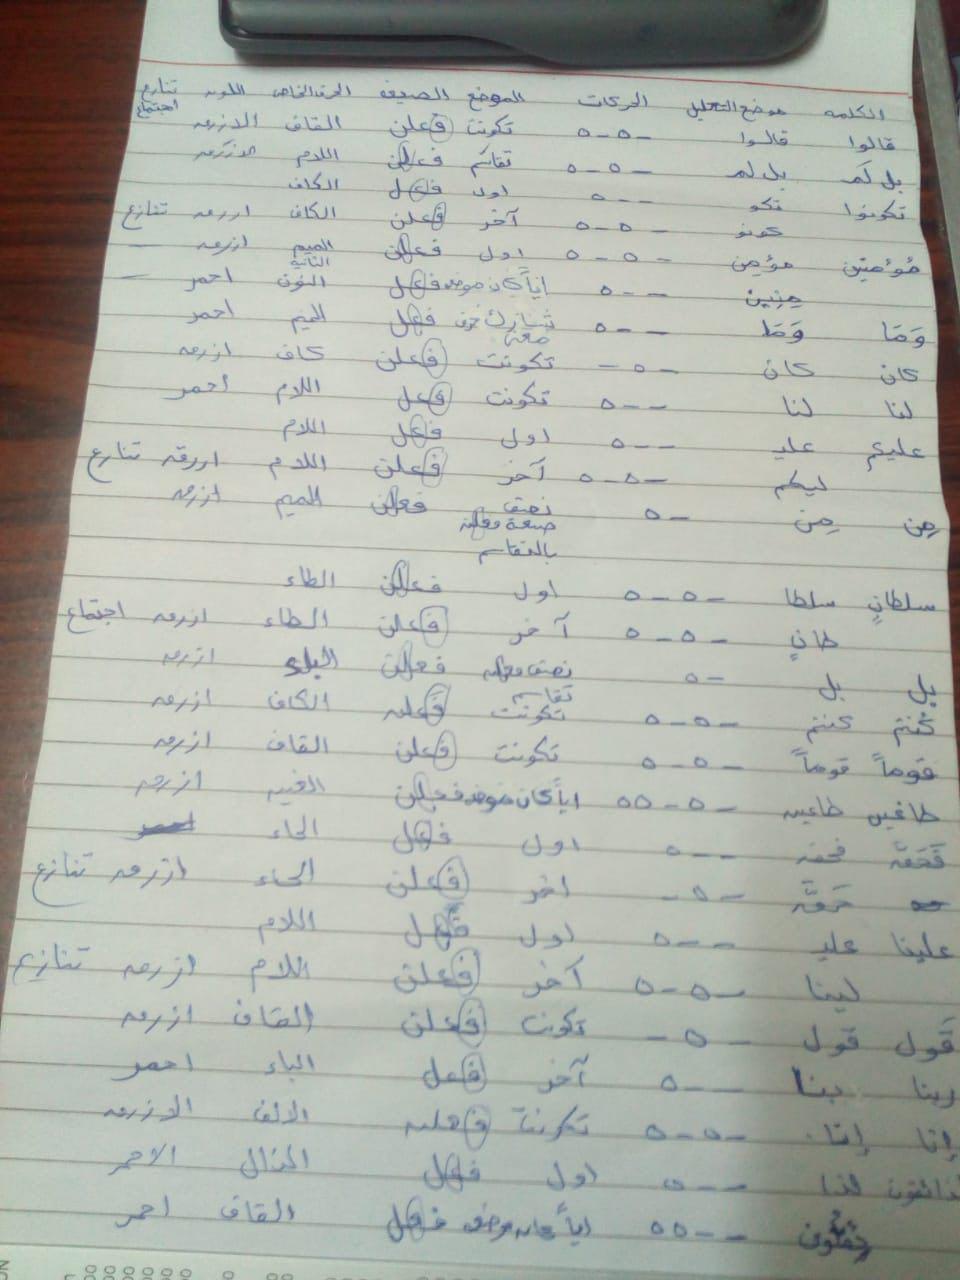 الكلمه موضع التحليل الحركات الموضع الصيغه الحرف الخاص اللون تنازع اجتماع
قالوا قالوا -٥-٥ تكونت فعلن القاف الازرق
بل لم بل لم -٥-٥ تقاسم فعلن اللام الازرق
تكونوا تكو --٥ اول فعل الكاف
كونو -٥-٥ آخر فعلن الكاف ازرق تنازع
مؤمنين مؤمن -٥-٥ اول فعلن الميم الثانيه ازرق
منين --٥ اياً كان موضعه فعل النون احمر
وما وما --٥ تشارك حرف معنى فعل الميم احمر
كان كان -٥- تكونت فعلن كاف ازرق
لنا لنا --٥ تكونت فعل اللام احمر
عليكم علي --٥ اول فعل اللام
ليكم -٥-٥ آخر فعلن اللام ازرق تنازع
من من -٥ نصف صيغة فعلن بالتقاسم فعلن الميم ازرق
سلطانٍ سلطا -٥-٥ اول فعلن الطاء
طانٍ -٥-٥ آخر فعلن الطاء ازرق اجتماع
بل بل -٥ نصف فعلن تقاسم فعلن الباء ازرق
كنتم كنتم -٥-٥ تكونت فعلن الكاف ازرق
قوماً قوماً -٥-٥ تكونت فعلن القاف ازرق
طاغين طاغين -٥-٥٥ اياً كان موضعه فعلن الغين ازرق
فحقّ فحقـ --٥ اول فعل الحاء احمر
حقّ -٥- اخر فعلن الحاء ازرق تنازع
علينا علي --٥ اول فعل اللام
لينا -٥-٥ آخر فعلن اللام ازرق تنازع
قول قول -٥- تكونت فعلن القاف ازرق
ربنا بنا --٥ آخر فعل الباء احمر
إنا إنا -٥-٥ تكونت فعلن الالف الازرق
لذائقون لذا --٥ اول فعل الذال الاحمر
ئقون --٥٥ اياً كان موضعه فعل القاف احمر